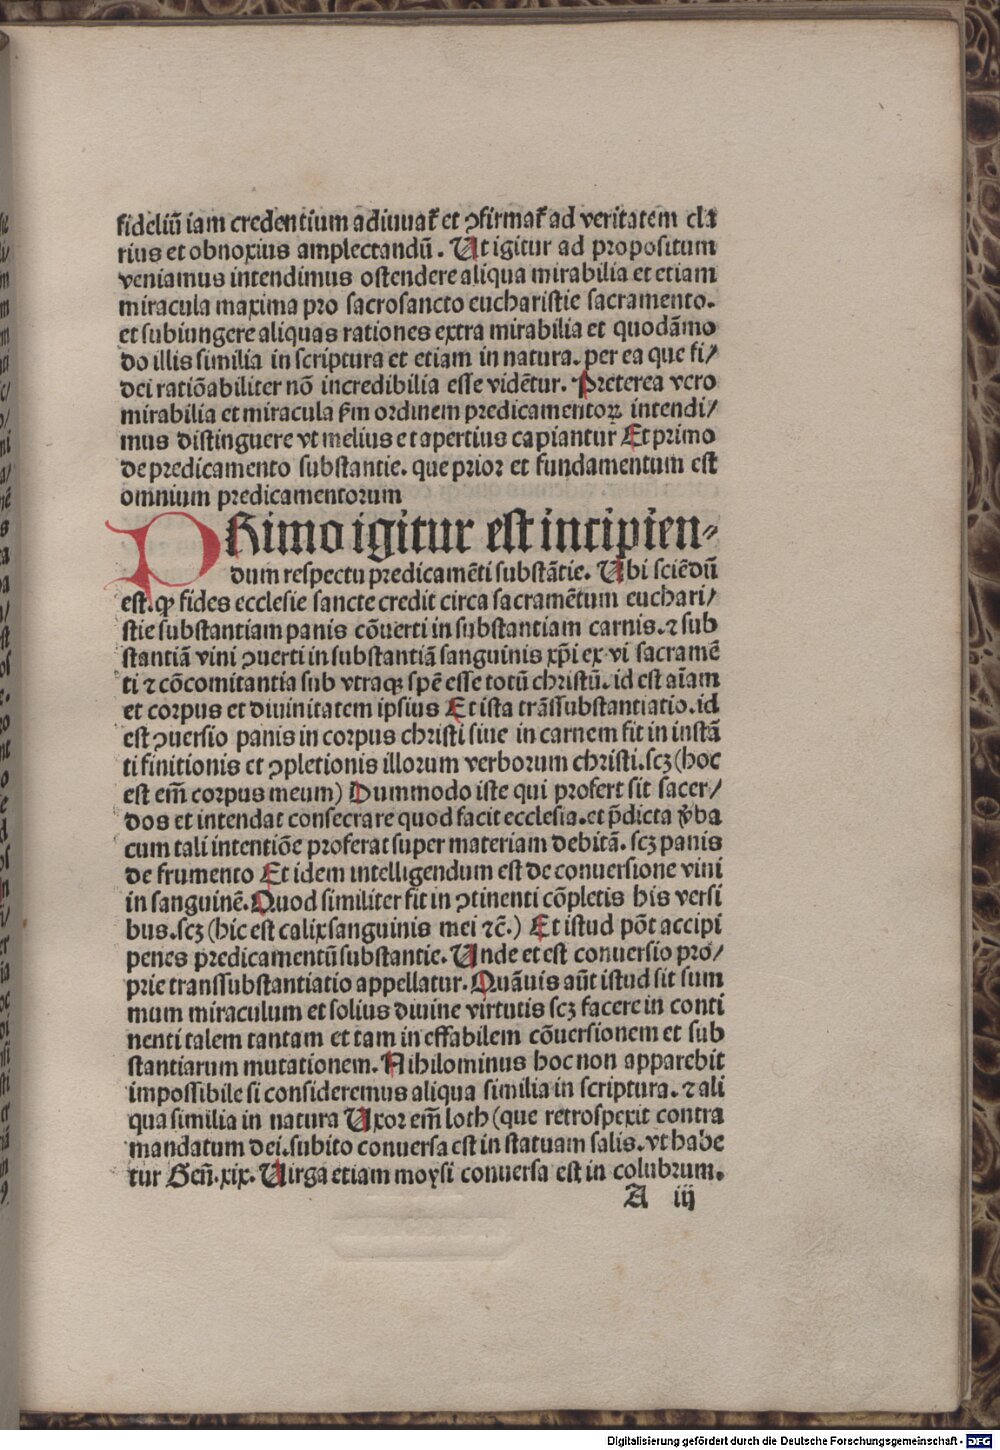 fideliū iam credentium adiuuat᷑ et ꝯfirmat᷑ ad veritatem cla
rius et obnoxius amplectandū. Ut igitur ad propositum
veniamus intendimus ostendere aliqua mirabilia et etiam
miracula maxima pro sacrosancto eucharistie sacramento.
et subiungere aliquas rationes extra mirabilia et quodāmo
do illis similia in scriptura et etiam in natura. per ea que fi/
dei ratiōabiliter nō incredibilia esse vidētur. Preterea vero
mirabilia et miracula ẜm ordinem predicamentoꝝ intendi/
mus distinguere vt melius et apertius capiantur Et primo
de predicamento substantie. que prior et fundamentum est
omnium predicamentorum
PRimo igitur est incipien-
dum respectu predicamēti substātie. Ubi sciēdū
est. ꝙ fides ecclesie sancte credit circa sacramētum euchari/
stie substantiam panis cōuerti in substantiam carnis. ⁊ sub
stantiā vini ꝯuerti in substantiā sanguinis xp̄i ex vi sacramē
ti ⁊ cōcomitantia sub vtraqꝫ spē esse totū christū. id est aīam
et corpus et diuinitatem ipsius Et ista trāssubstantiatio. id
est ꝯuersio panis in corpus christi siue in carnem fit in instā
ti finitionis et ꝯpletionis illorum verborum christi. scꝫ (hoc
est em̄ corpus meum) Dummodo iste qui profert sit sacer/
dos et intendat consecrare quod facit ecclesia. et p̄dicta v̓ba
cum tali intentiōe proferat super materiam debitā. scꝫ panis
de frumento Et idem intelligendum est de conuersione vini
in sanguinē. Quod similiter fit in ꝯtinenti cōpletis his versi
bus. scꝫ (hic est calix sanguinis mei ⁊c̄.) Et istud pōt accipi
penes predicamentū substantie. Unde et est conuersio pro/
prie transsubstantiatio appellatur. Quāuis aūt istud sit sum
mum miraculum et solius diuine virtutis scꝫ facere in conti
nenti talem tantam et tam ineffabilem cōuersionem et sub
stantiarum mutationem. Nihilominus hoc non apparebit
impossibile si consideremus aliqua similia in scriptura. ⁊ ali
qua similia in natura Uxor em̄ loth (que retrospexit contra
mandatum dei. subito conuersa est in statuam salis. vt habe
tur Gen̄. xix. Uirga etiam moysi conuersa est in colubrum.
A iij
Digitalisierung gefördert durch die Deutsche Forschungsgemeinschaft - DFG